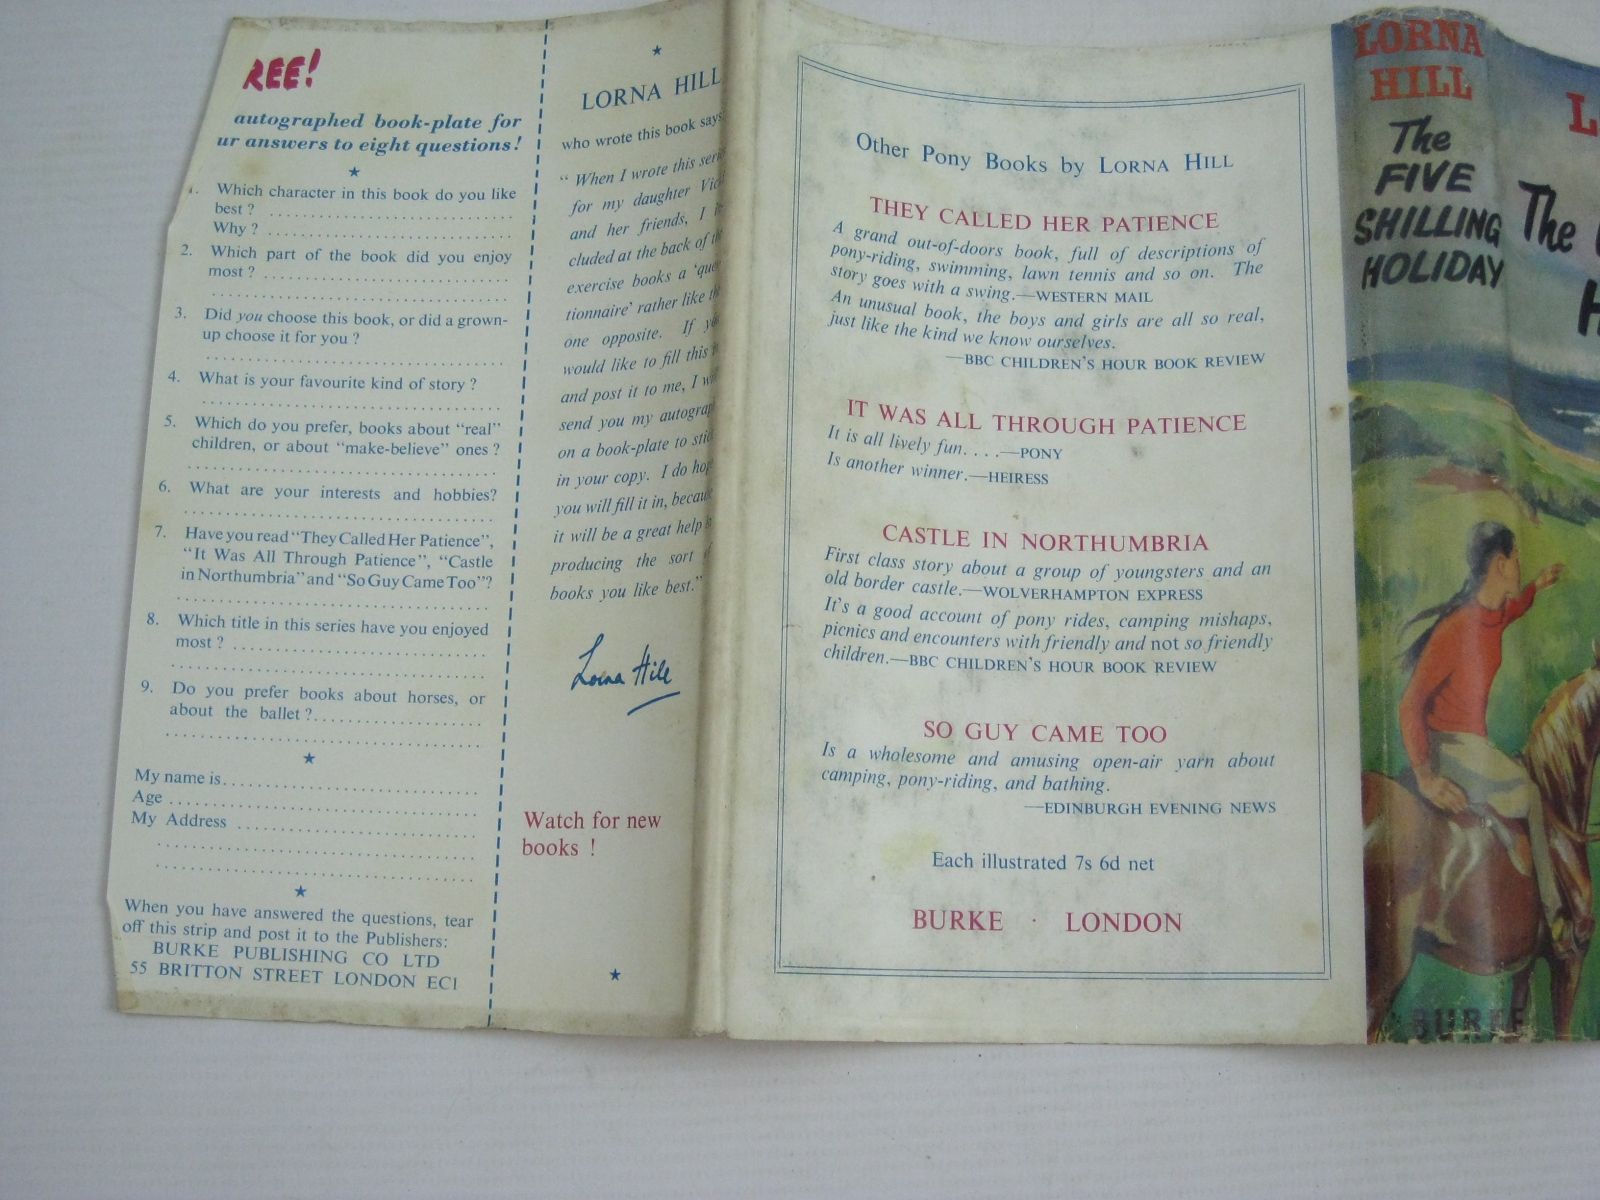 REE!
autographed book-plate for
ur answers to eight questions!
Which character in this book do you like
best ?
Why ?
2. Which part of the book did you enjoy
most ?
3. Did you choose this book, or did a grown-
up choose it for you ?
4. What is your favourite kind of story ?
5. Which do you prefer, books about "real"
children, or about "make-believe" ones ?
6. What are your interests and hobbies?
7. Have you read "They Called Her Patience",
"It Was All Through Patience", "Castle
in Northumbria" and "So Guy Came Too"?
8. Which title in this series have you enjoyed
most ?
9. Do you prefer books about horses, or
about the ballet ?
My name is
Age
My Address
When you have answered the questions, tear
off this strip and post it to the Publishers:
BURKE PUBLISHING CO LTD
55 BRITTON STREET LONDON EC1
LORNA HILL
who wrote this book says
" When I wrote this
for my daughter
and her friends, I
cluded at the back of
exercise books a
tionnaire' rather like
one opposite. If
would like to fill this
and post it to me, I
send you my
on a book-plate to
in your copy. I do
you will fill it in,
it will be a great help
producing the sort
books you like best."
Lorna Hill
Watch for new
books !
Other Pony Books by LORNA HILL
THEY CALLED HER PATIENCE
A grand out-of-doors book, full of descriptions of
pony-riding, swimming, lawn tennis and so on. The
story goes with a swing.—WESTERN MAIL
An unusual book, the boys and girls are all so real,
just like the kind we know ourselves.
—BBC CHILDREN'S HOUR BOOK REVIEW
IT WAS ALL THROUGH PATIENCE
It is all lively fun. . . .—PONY
Is another winner.—HEIRESS
CASTLE IN NORTHUMBRIA
First class story about a group of youngsters and an
old border castle.—WOLVERHAMPTON EXPRESS
It's a good account of pony rides, camping mishaps,
picnics and encounters with friendly and not so friendly
children.—BBC CHILDREN'S HOUR BOOK REVIEW
SO GUY CAME TOO
Is a wholesome and amusing open-air yarn about
camping, pony-riding, and bathing.
—EDINBURGH EVENING NEWS
Each illustrated 7s 6d net
BURKE · LONDON
LORNA
HILL
The
FIVE
SHILLING
HOLIDAY
BURKE
L
The
H